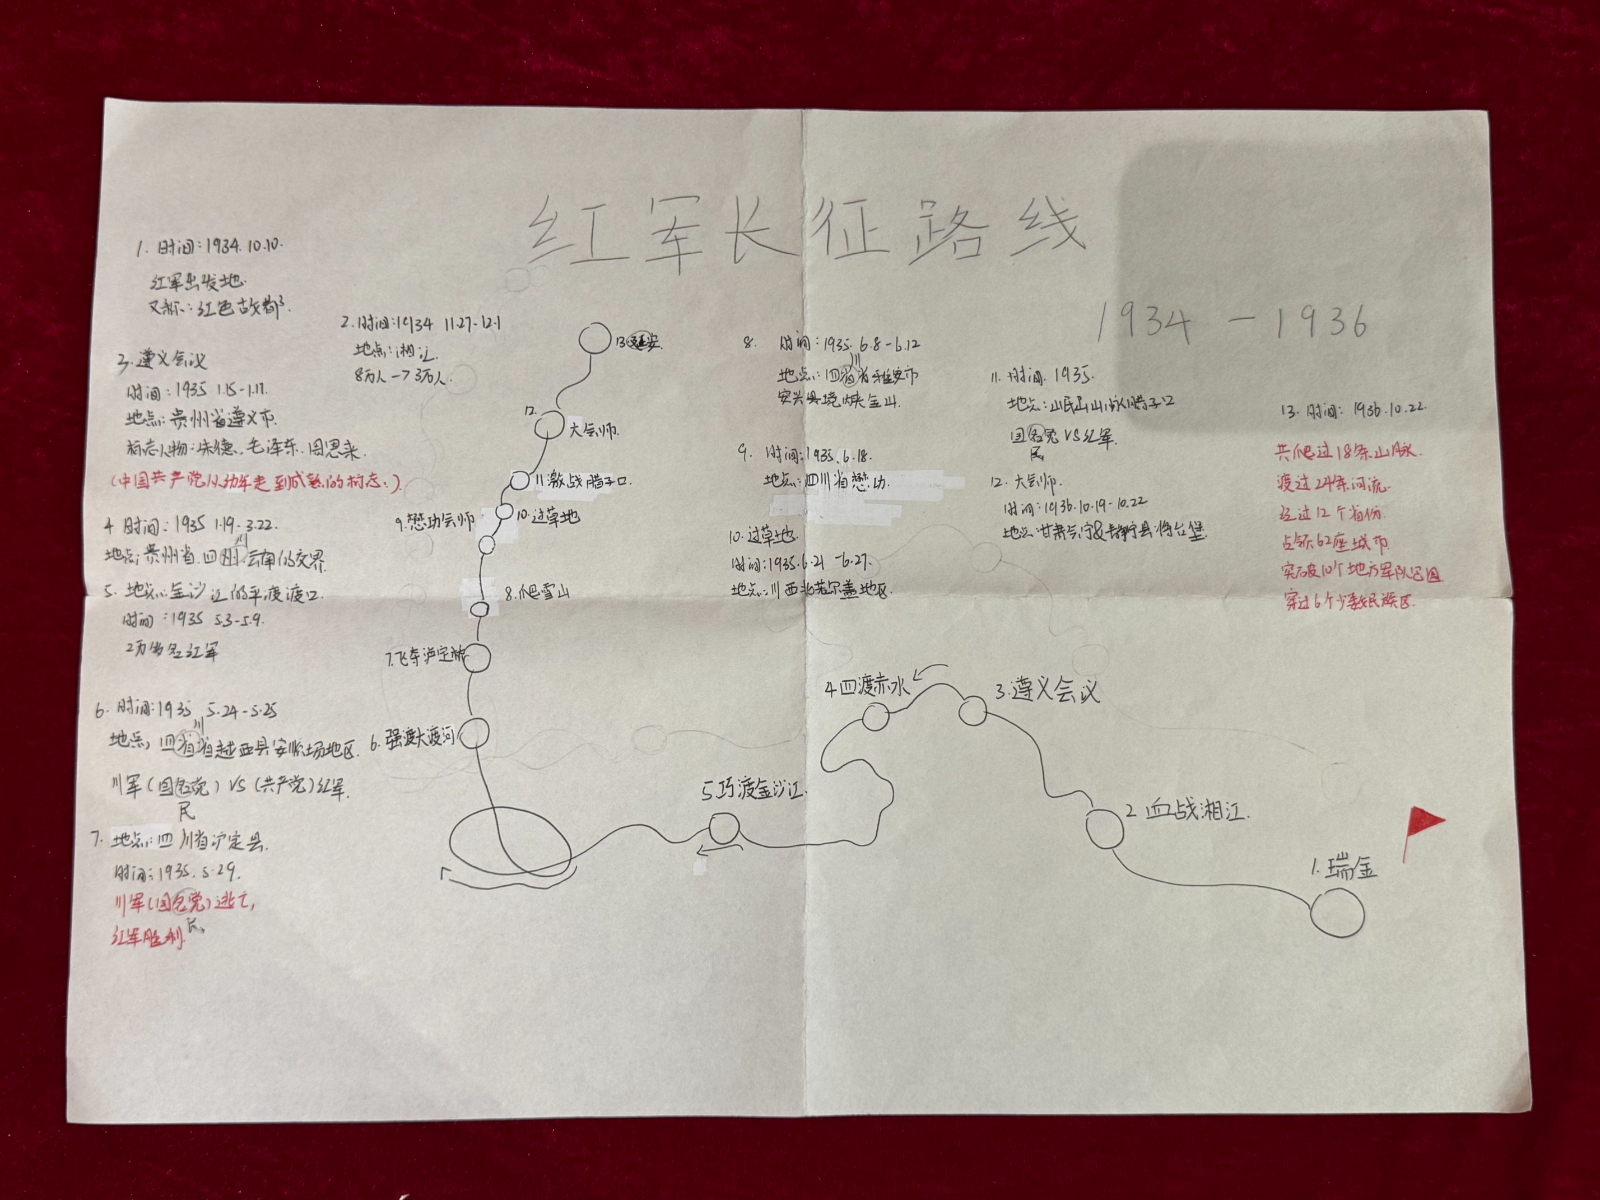 红军长征路线
1934-1936
1. 时间:1934.10.10.
红军出发地.
又称:红色故都.
2.时间:1934 11.27-12.1
地点:湘江.
8万人→3万人.
3.遵义会议
时间:1935 1.15-1.17.
地点:贵州省遵义市.
标志人物:朱德、毛泽东、周恩来.
(中国共产党从幼年走到成熟的标志.)
4 时间:1935 1.19-3.22.
川
地点:贵州省.四州.云南的交界
5. 地点:金沙江的平渡渡口.
时间:1935 5.3-5.9.
2万多名红军
6. 时间:1935 5.24-5.25
川
地点:四省省越西县安顺场地区.
川军(国名党)VS(共产党)红军.
民
7. 地点:四川省泸定县.
时间:1935.5.29.
川军(国名党)逃亡,
民
红军胜利.
8. 时间:1935.6.8-6.12
川
地点:四省省雅安市
宝兴县境夹金山.
9. 时间:1935.6.18.
地点:四川省懋功.
10.过草地.
时间:1935.6.21-6.27.
地点:川西北若尔盖地区.
11.时间.1935.
地点:山民县山脉腊子口
国名党VS红军.
民
12.大会师.
时间:1936.10.19-10.22
地点:甘肃会宁及静宁县将台堡.
13.时间:1936.10.22
共爬过18条山脉.
渡过24条河流.
经过12个省份.
占领62座城市
突破10个地方军队包围
穿过6个少数民族区.
13延安.
12.
大会师.
11激战腊子口
10.过草地
9.懋功会师
8.爬雪山
7.飞夺泸定桥
6.强渡大渡河
5巧渡金沙江.
4四渡赤水
3.遵义会议
2血战湘江.
1.瑞金